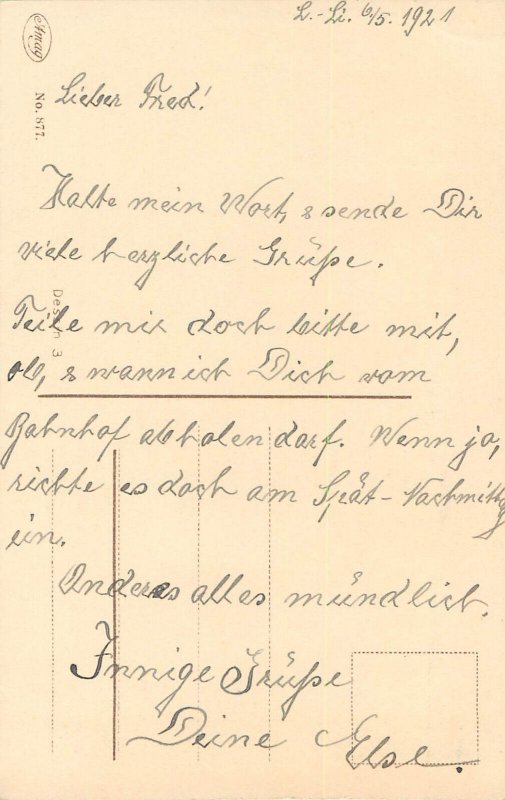 L.-Li. 6/5. 1921
Amag
No. 877.
Lieber Fred!
Halte mein Wort, & sende Dir
viele herzliche Grüße.
Teile mir doch bitte mit,
ob, & wann ich Dich vom
Bahnhof abholen darf. Wenn ja,
richte es doch am Spät-Nachmittg
ein.
Anderes alles mündlich.
Innige Grüße
Deine Else.